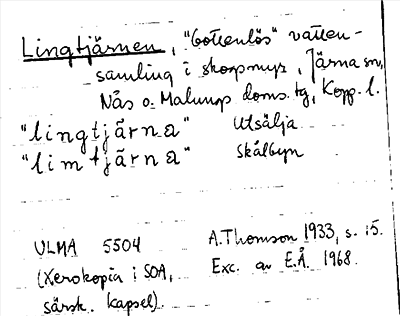 Lingtjärnen, "bottenlös" vatten-
samling i skogsmyr, Järna sn,
Nås o. Malungs doms. tg, Kopp. l.
"lingtjärna" Utsälja
"limtjärna" Skålbyn
ULMA 5504 A. Thomson 1933, s. 15.
(Xerokopia i SOA, Exc. av E.Å. 1968.
särsk. kapsel).